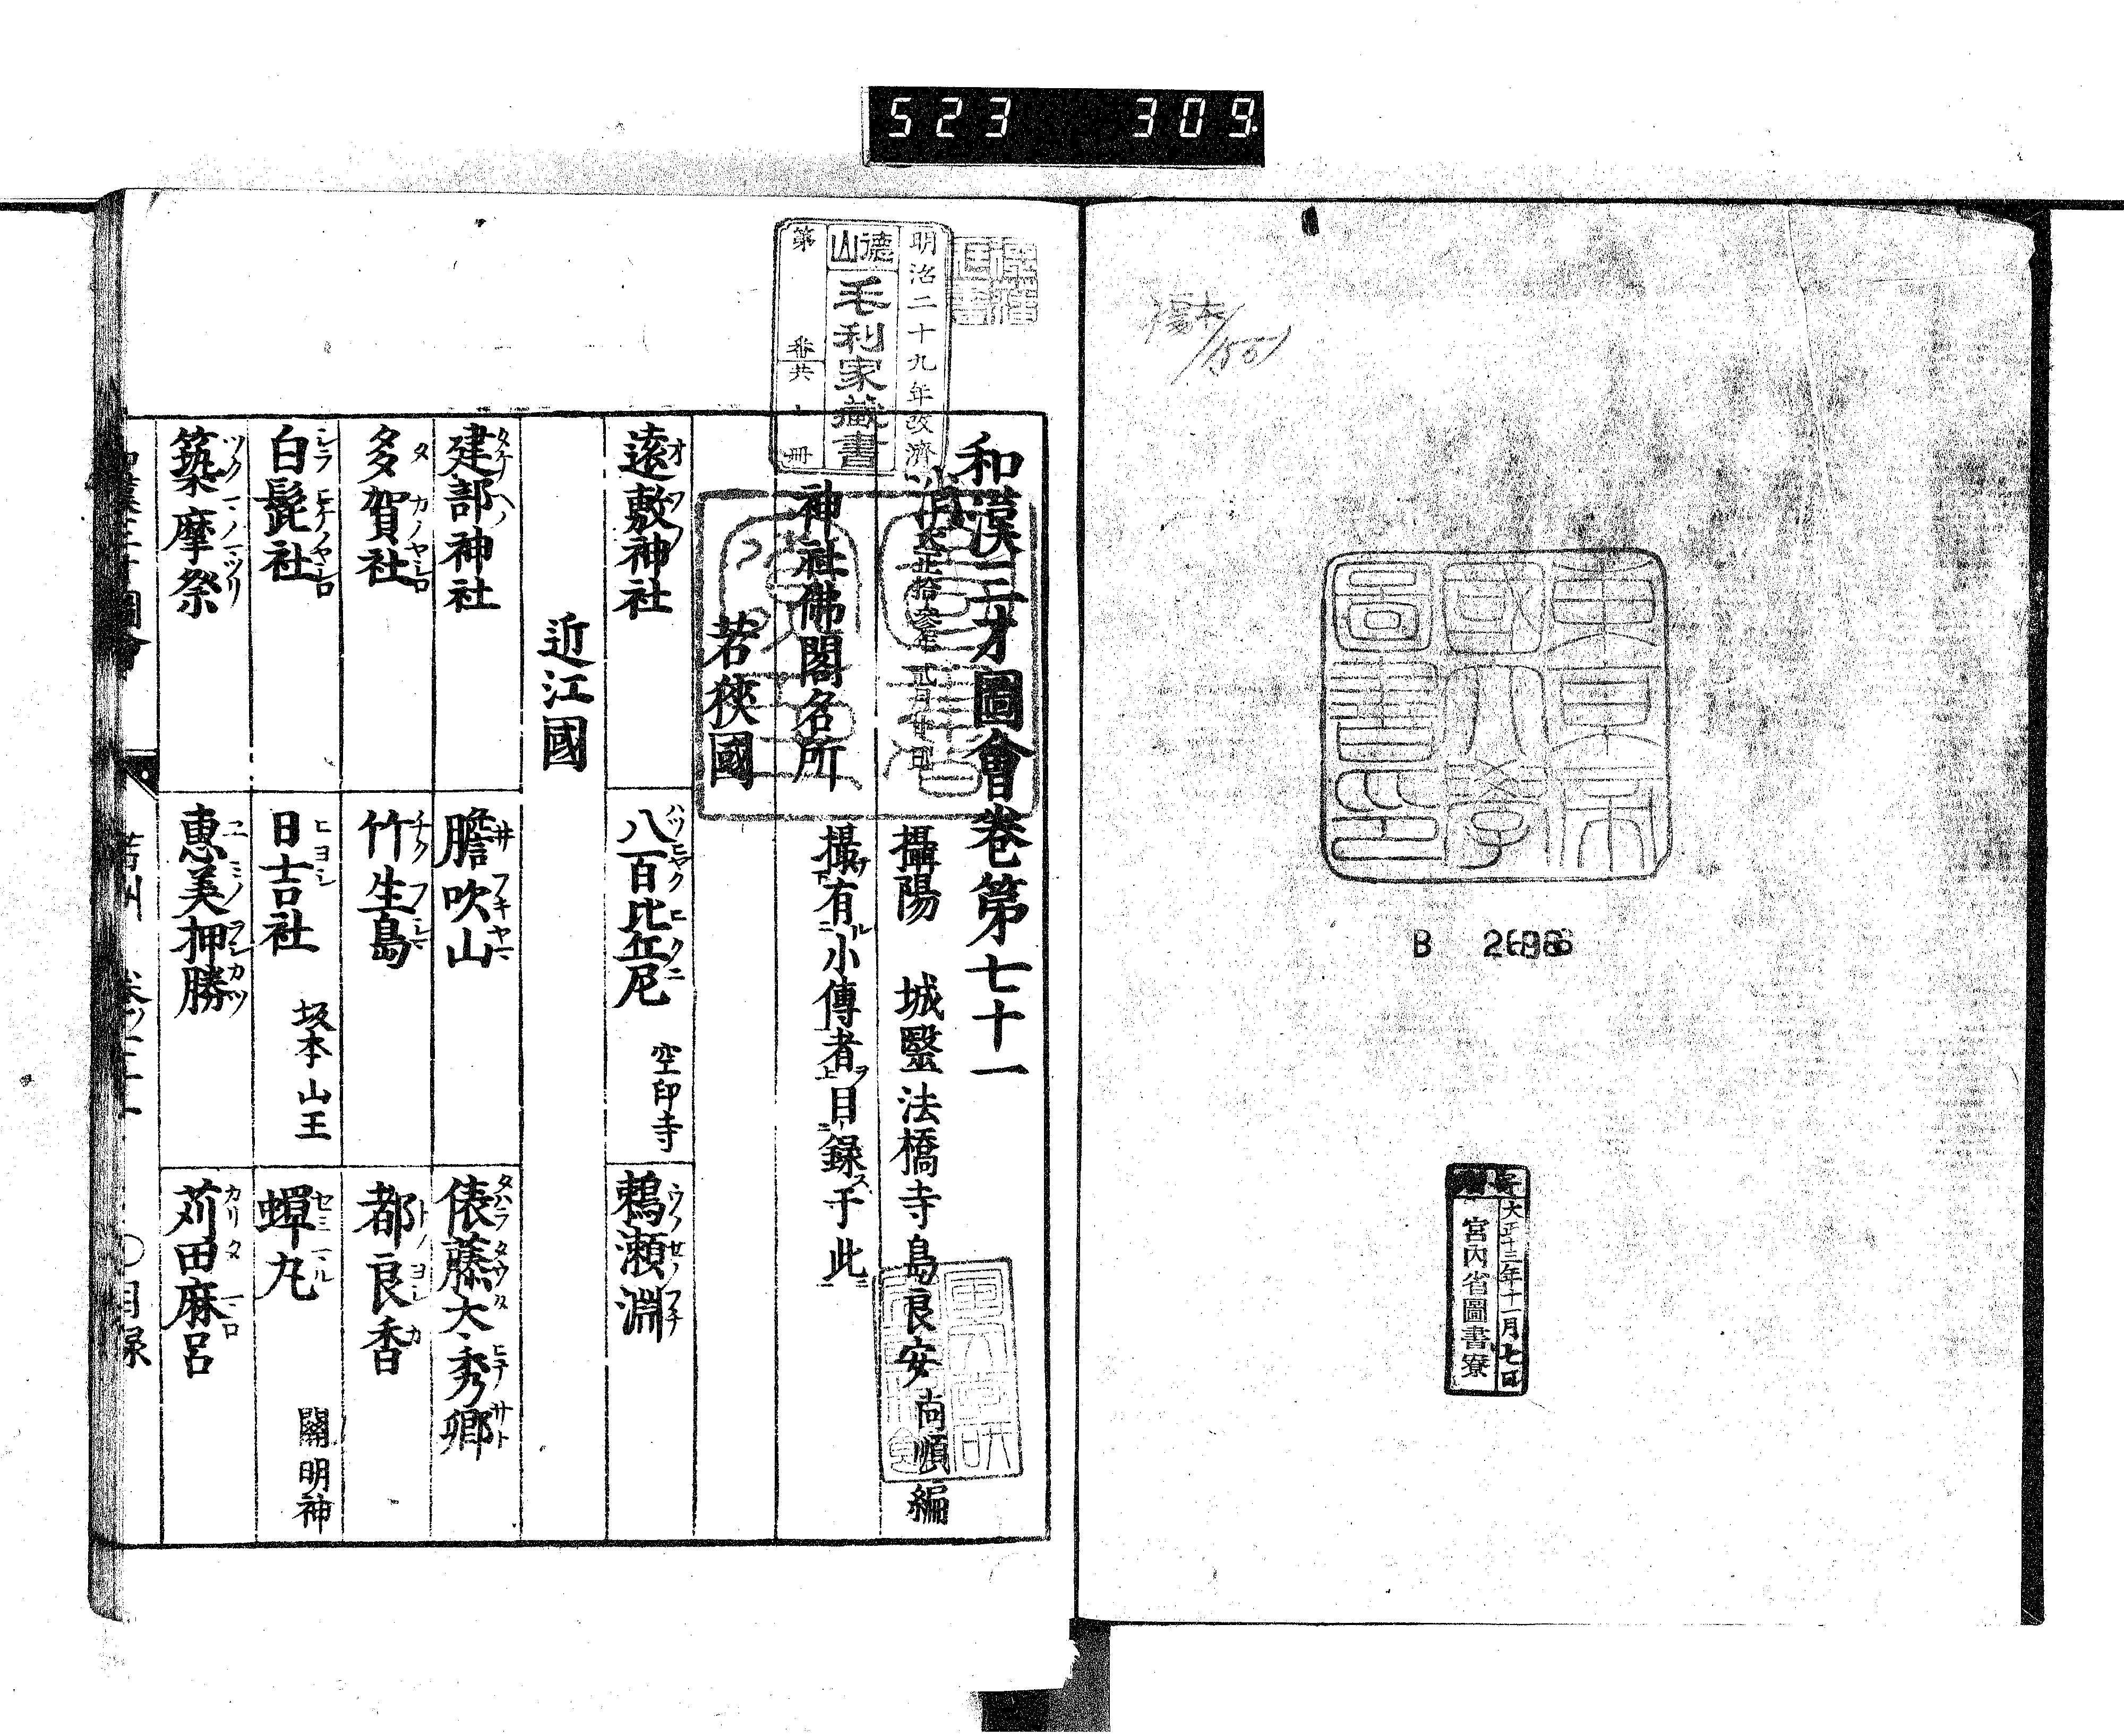 523 309
東京帝
國大學
圖書印
B 2696
大正十三年十一月七日
宮内省圖書寮
明治二十九年改濟
德山
毛利家藏書
第 番共 冊
和漢三才圖會卷第七十一
攝陽 城醫法橋寺島良安尚順編
神社佛閣名所 撮有小傳者目録于此
若狹國
遠敷神社 八百比丘尼 空印寺 鵜瀬淵
近江國
建部神社 膽吹山 俵藤太秀郷
多賀社 竹生島 都良香
白髭社 日吉社 坂本山王 蟬丸 關明神
筑摩祭 惠美押勝 苅田麻呂
目録